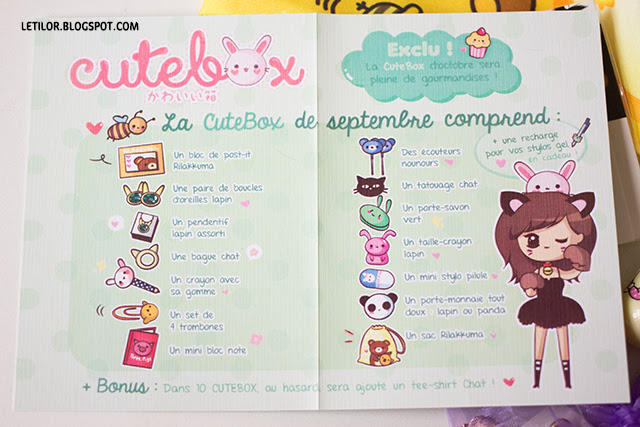 LETILOR.BLOGSPOT.COM
cutebox
かわいい箱
Exclu !
La CuteBox d'octobre sera
pleine de gourmandises !
La CuteBox de septembre comprend :
Un bloc de post-it
Rilakkuma
Une paire de boucles
d'oreilles lapin
Un pendentif
lapin assorti
Une bague chat
Un crayon avec
sa gomme
Un set de
4 trombones
Un mini bloc note
Des écouteurs
nounours
Un tatouage chat
Un porte-savon
vert
Un taille-crayon
lapin
Un mini stylo pilule
Un porte-monnaie tout
doux lapin ou panda
Un sac Rilakkuma
+ une recharge
pour vos stylos gel
en cadeau
+ Bonus : Dans 10 CUTEBOX, au hasard, sera ajouté un tee-shirt Chat !